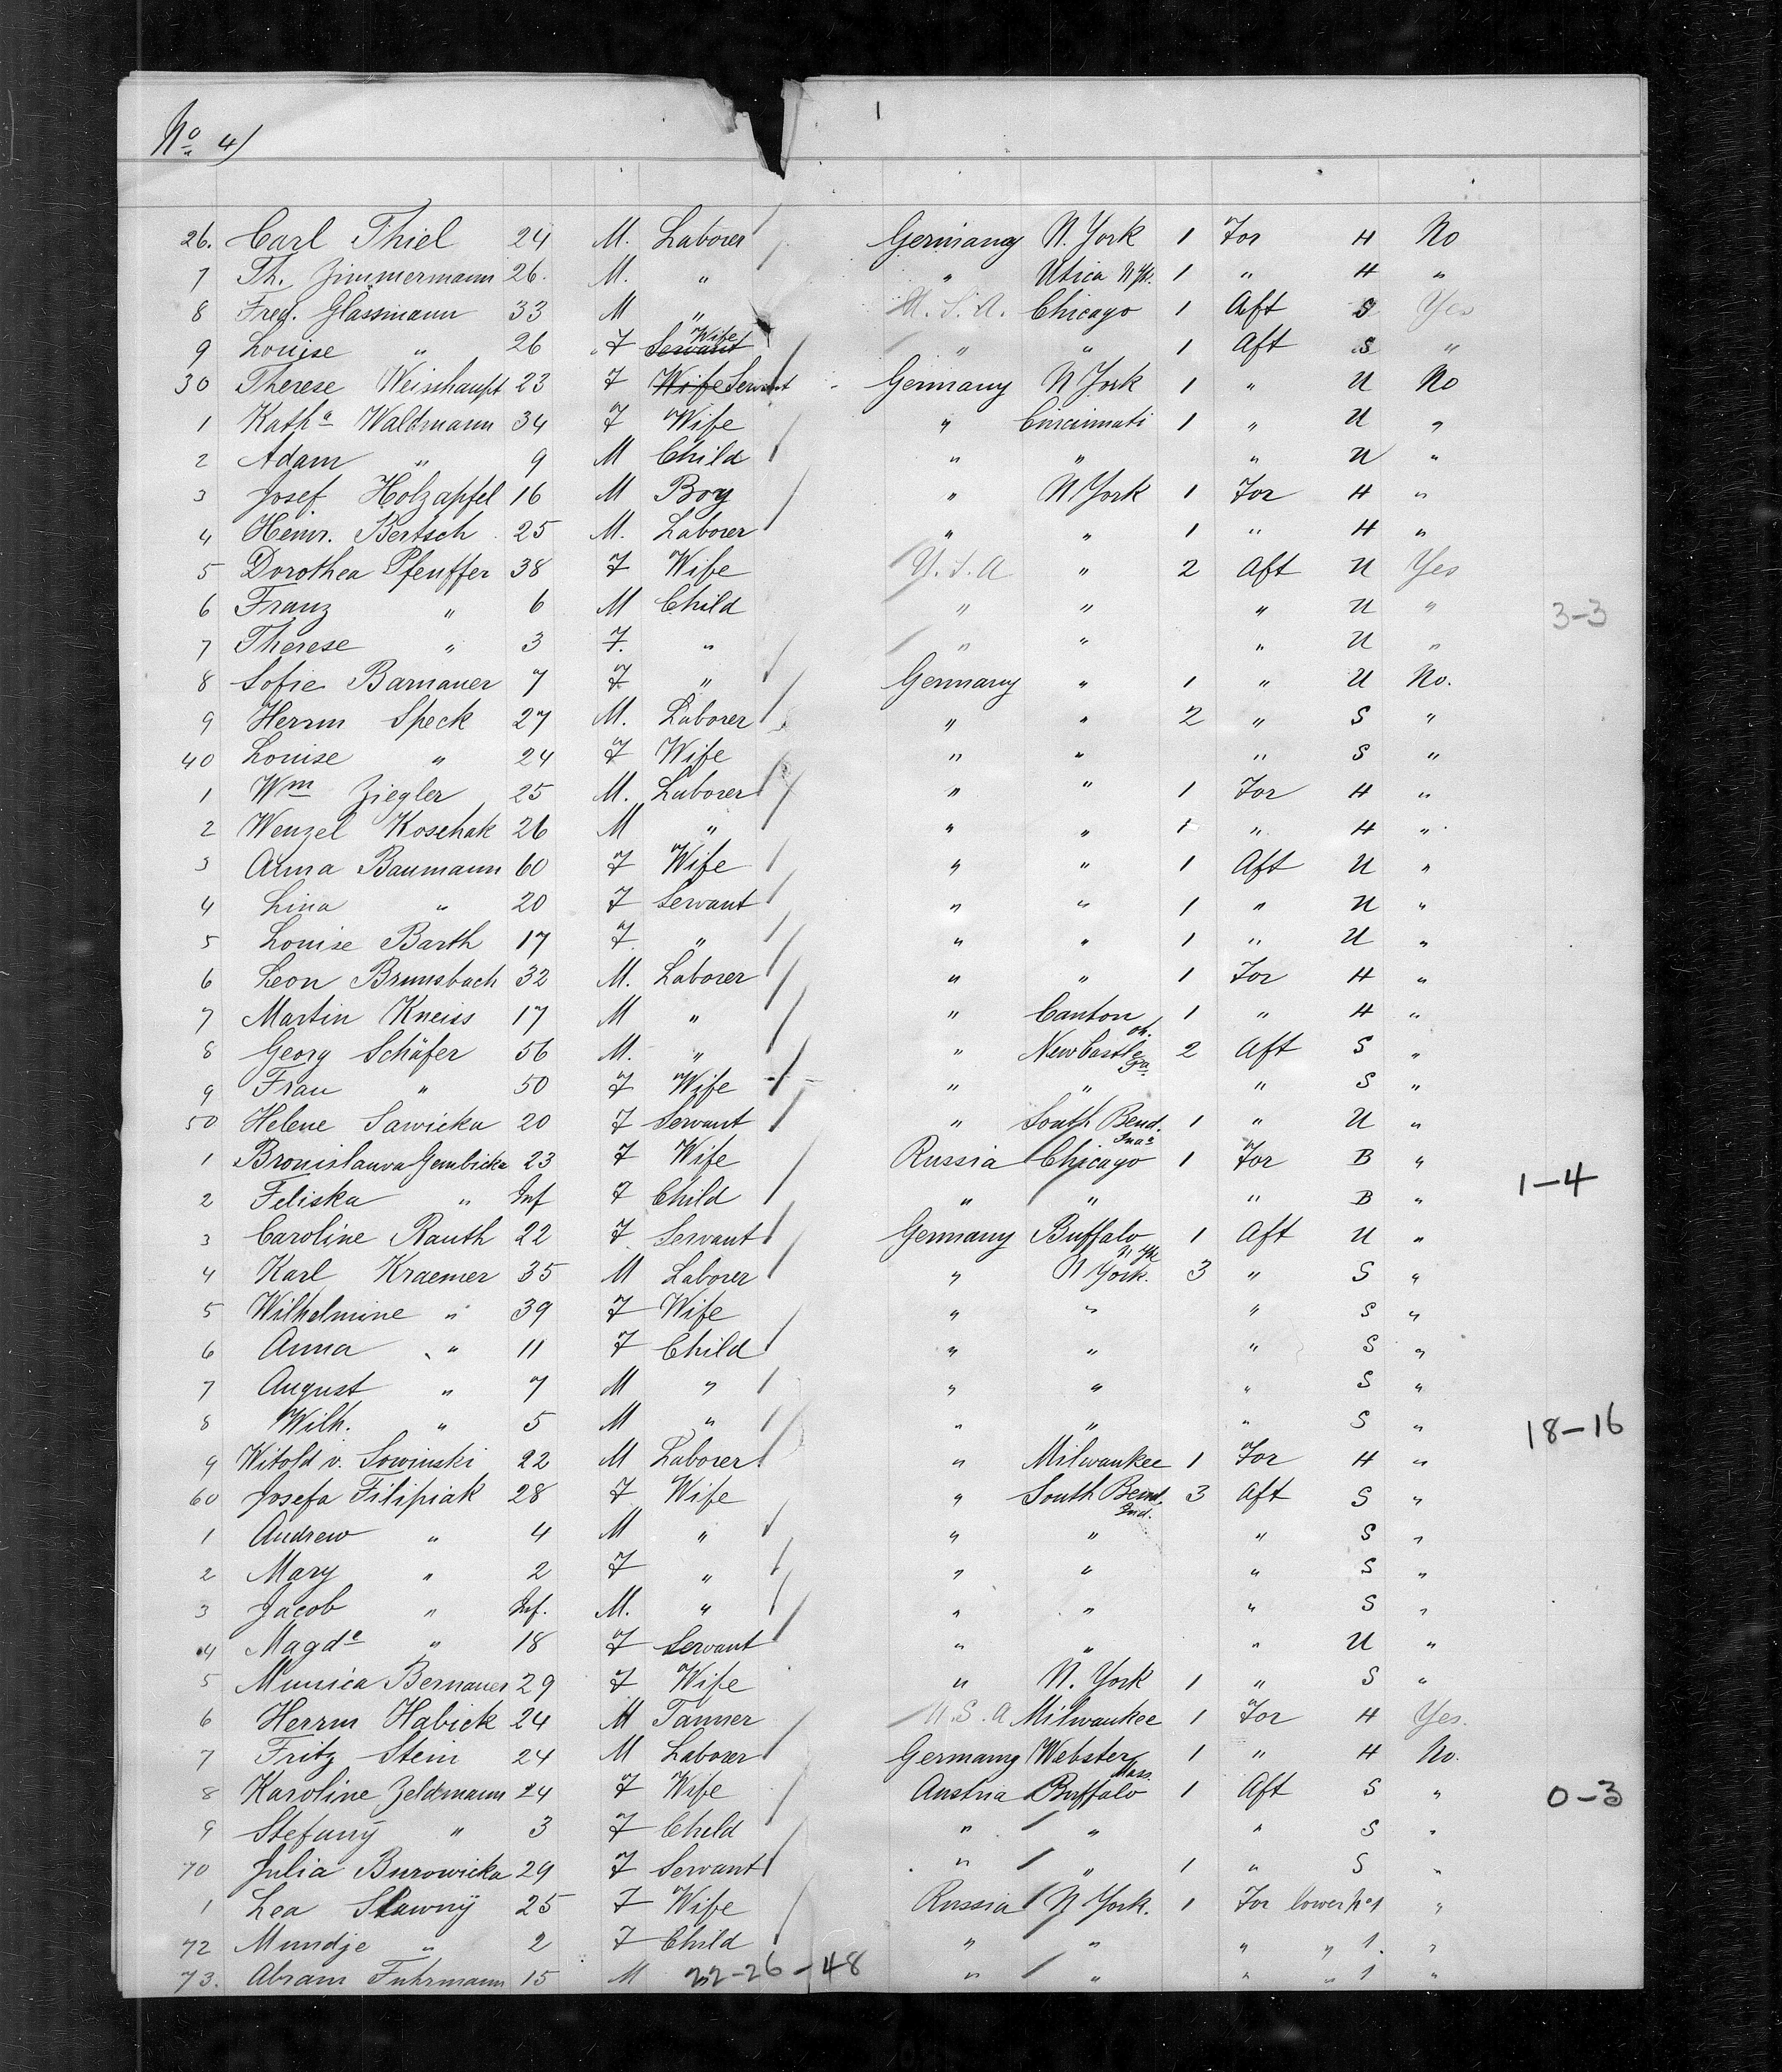 No 4)
1
26. Carl Thiel 24 M. Laborer Germany N. York 1 For H No
7 Th. Zimmermann 26. M. " " Utica N Yk. 1 " H "
8 Fred. Glassmann 33 M " U. S. A. Chicago 1 Aft S Yes
9 Louise " 26 F Servant Wife " " 1 Aft S "
30 Therese Weisshaupt 23 F Wife Servant Germany N York 1 " U No
1 Katha Waldmann 34 F Wife " Cincinnati 1 " U "
2 Adam " 9 M Child " " " U "
3 Josef Holzapfel 16 M Boy " N York 1 For H "
4 Heinr. Bertsch 25 M. Laborer " " 1 " H "
5 Dorothea Pfeuffer 38 F Wife U. S. A " 2 Aft U Yes
6 Franz " 6 M Child " " " U " 3-3
7 Therese " 3 F. " " " " U "
8 Sofie Barnauer 7 F " Germany " 1 " U No.
9 Herrm Speck 27 M. Laborer " " 2 " S "
40 Louise " 24 F Wife " " " S "
1 Wm Ziegler 25 M. Laborer " " 1 For H "
2 Wenzel Koschak 26 M " " " 1 " H "
3 Anna Baumann 60 F Wife " " 1 Aft U "
4 Lina " 20 F Servant " " 1 " U "
5 Louise Barth 17 F. " " " 1 " U "
6 Leon Brunsbach 32 M. Laborer " " 1 For H "
7 Martin Kneiss 17 M " " Canton oh. 1 " H "
8 Georg Schäfer 56 M. " " NewCastle Pa 2 Aft S "
9 Frau " 50 F Wife " " " S "
50 Helene Sawicka 20 F Servant " South Bend. Ina 1 " U "
1 Bronislauva Gembicka 23 F Wife Russia Chicago 1 For B "
2 Feliska " Inf F Child " " " B " 1-4
3 Caroline Rauth 22 F Servant Germany Buffalo N Yk 1 Aft U "
4 Karl Kraemer 35 M Laborer " N York. 3 " S "
5 Wilhelmine " 39 F Wife " " " S "
6 Anna " 11 F Child " " " S "
7 August " 7 M " " " " S "
8 Wilh. " 5 M " " " " S " 18-16
9 Witold v. Sowinski 22 M Laborer " Milwaukee 1 For H "
60 Josefa Filipiak 28 F Wife " South Bend. Ind. 3 Aft S "
1 Andrew " 4 M " " " " S "
2 Mary " 2 F " " " " S "
3 Jacob " Inf. M. " " " " S "
4 Magde " 18 F Servant " " " U "
5 Munica Bernauer 29 F Wife " N. York 1 " S "
6 Herrm Habick 24 M Tanner U. S. A Milwaukee 1 For H Yes.
7 Fritz Stein 24 M Laborer Germany Webster Mass. 1 " H No.
8 Karoline Zeldmann 24 F Wife Austria Buffalo 1 Aft S " 0-3
9 Stefany " 3 F Child " " " S "
70 Julia Burowicka 29 F Servant " " 1 " S "
1 Lea Slawny 25 F Wife Russia N York. 1 For lower No 1 "
72 Mundje " 2 F Child " " " " 1. "
73. Abram Fuhrmann 15 M " " " " " 1 "
22-26-48